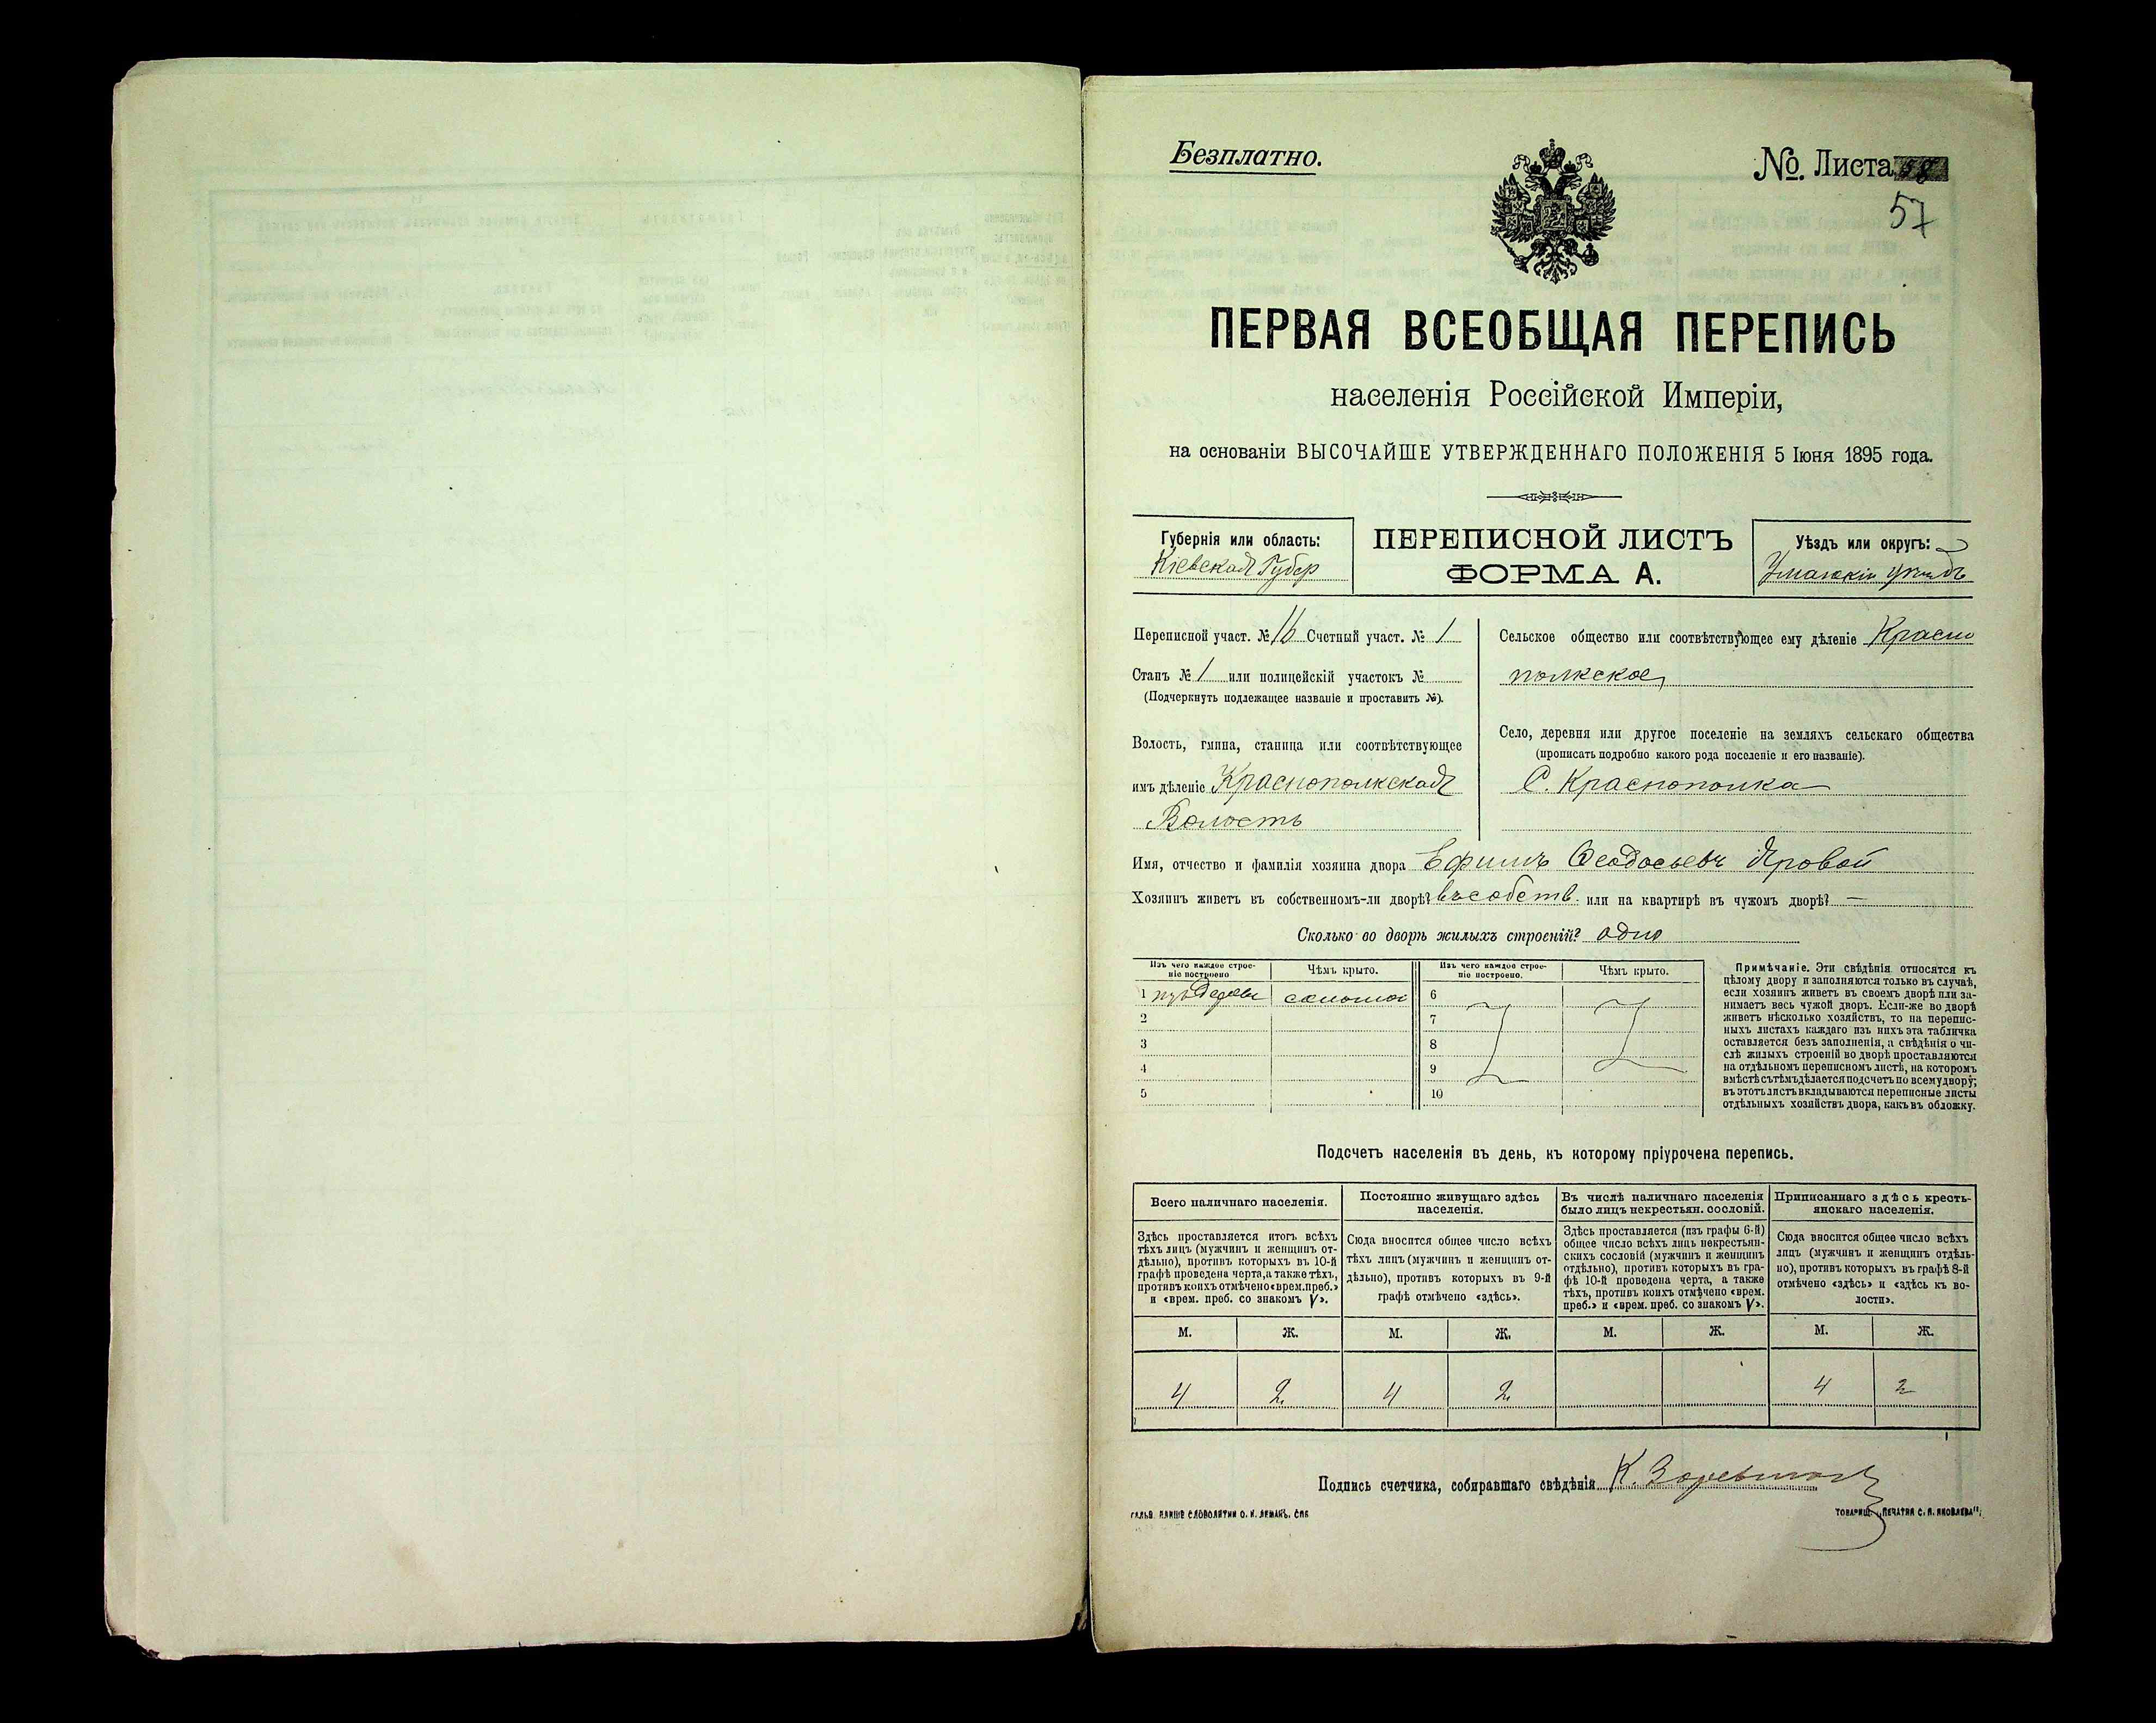 Безплатно.
№. Листа
57
ПЕРВАЯ ВСЕОБЩАЯ ПЕРЕПИСЬ
населенія Россійской Имперіи,
на основаніи ВЫСОЧАЙШЕ УТВЕРЖДЕННАГО ПОЛОЖЕНІЯ 5 Іюня 1895 года.
Губернія или область:
Кіевская Губер
ПЕРЕПИСНОЙ ЛИСТЪ
ФОРМА А.
Уѣздъ или округъ:
Уманскій уѣздъ
Переписной участ. № 16 Счетный участ. № 1
Станъ № 1 или полицейскій участокъ №
(Подчеркнуть подлежащее названіе и проставить №).
Волость, гмина, станица или соотвѣтствующее
имъ дѣленіе Краснополкская
Волость
Сельское общество или соотвѣтствующее ему дѣленіе Красно
полкское
Село, деревня или другое поселеніе на земляхъ сельскаго общества
(прописать подробно какого рода поселеніе и его названіе).
С. Краснополка
Имя, отчество и фамилія хозяина двора Ефимъ Ѳеодосьевъ Яровой
Хозяинъ живетъ въ собственномъ-ли дворѣ? въ собств. или на квартирѣ въ чужомъ дворѣ? —
Сколько во дворѣ жилыхъ строеній? одно
Изъ чего каждое строе-
ніе построено
Чѣмъ крыто.
Изъ чего каждое строе-
ніе построено.
Чѣмъ крыто.
1 изъ дерева соломой
2
3
4
5
6
7
8
9
10
Примѣчаніе. Эти свѣдѣнія относятся къ
цѣлому двору и заполняются только въ случаѣ,
если хозяинъ живетъ въ своемъ дворѣ или за-
нимаетъ весь чужой дворъ. Если-же во дворѣ
живетъ нѣсколько хозяйствъ, то на перепис-
ныхъ листахъ каждаго изъ нихъ эта табличка
оставляется безъ заполненія, а свѣдѣнія о чи-
слѣ жилыхъ строеній во дворѣ проставляются
на отдѣльномъ переписномъ листѣ, на которомъ
вмѣстѣ съ тѣмъ дѣлается подсчетъ по всему двору;
въ этотъ листъ вкладываются переписные листы
отдѣльныхъ хозяйствъ двора, какъ въ обложку.
Подсчетъ населенія въ день, къ которому пріурочена перепись.
Всего наличнаго населенія.
Здѣсь проставляется итогъ всѣхъ
тѣхъ лицъ (мужчинъ и женщинъ от-
дѣльно), противъ которыхъ въ 10-й
графѣ проведена черта, а также тѣхъ,
противъ коихъ отмѣчено «врем. преб.»
и «врем. преб. со знакомъ V».
Постоянно живущаго здѣсь
населенія.
Сюда вносится общее число всѣхъ
тѣхъ лицъ (мужчинъ и женщинъ от-
дѣльно), противъ которыхъ въ 9-й
графѣ отмѣчено «здѣсь».
Въ числѣ наличнаго населенія
было лицъ некрестьян. сословій.
Здѣсь проставляется (изъ графы 6-й)
общее число всѣхъ лицъ некрестьян-
скихъ сословій (мужчинъ и женщинъ
отдѣльно), противъ которыхъ въ гра-
фѣ 10-й проведена черта, а также
тѣхъ, противъ коихъ отмѣчено «врем.
преб.» и «врем. преб. со знакомъ V».
Приписаннаго здѣсь кресть-
янскаго населенія.
Сюда вносится общее число всѣхъ
лицъ (мужчинъ и женщинъ отдѣль-
но), противъ которыхъ въ графѣ 8-й
отмѣчено «здѣсь» и «здѣсь къ во-
лости».
М. Ж. М. Ж. М. Ж. М. Ж.
4 2 4 2 4 2
Подпись счетчика, собиравшаго свѣдѣнія К.
ГАЛЬВ. КЛИШЕ СЛОВОЛИТНИ О. И. ЛЕМАНЪ, СПБ
ТОВАРИЩ. „ПЕЧАТНЯ С. П. ЯКОВЛЕВА".